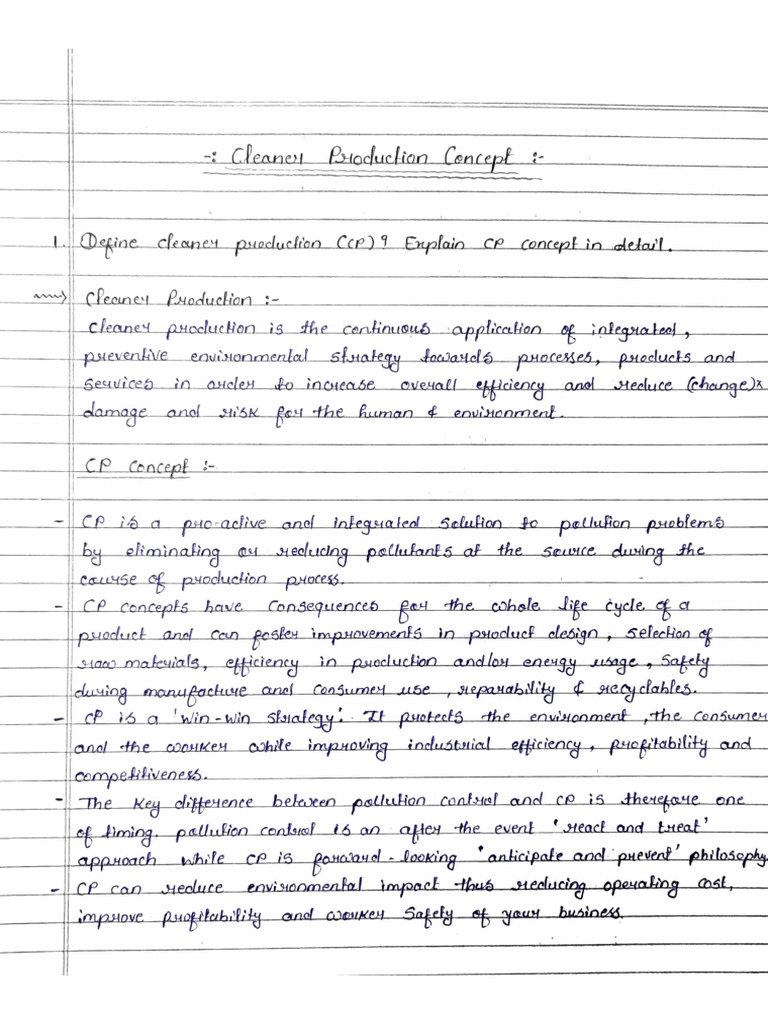 -: Cleaner Production Concept :-
1. Define cleaner production (CP)? Explain CP concept in detail.
Cleaner Production :-
Cleaner production is the continuous application of integrated,
preventive environmental strategy towards processes, products and
services in order to increase overall efficiency and reduce (change)x
damage and risk for the human & environment.
CP Concept :-
- CP is a pro-active and integrated solution to pollution problems
by eliminating or reducing pollutants at the source during the
course of production process.
- CP concepts have consequences for the whole life cycle of a
product and can foster improvements in product design, selection of
raw materials, efficiency in production and/or energy usage, safety
during manufacture and consumer use, reparability & recyclables.
- CP is a 'win-win strategy'. It protects the environment, the consumer
and the worker while improving industrial efficiency, profitability and
competitiveness.
- The key difference between pollution control and CP is therefore one
of timing. pollution control is an after the event 'react and treat'
approach while CP is forward-looking 'anticipate and prevent' philosophy.
- CP can reduce environmental impact thus reducing operating cost,
improve profitability and worker safety of your business.